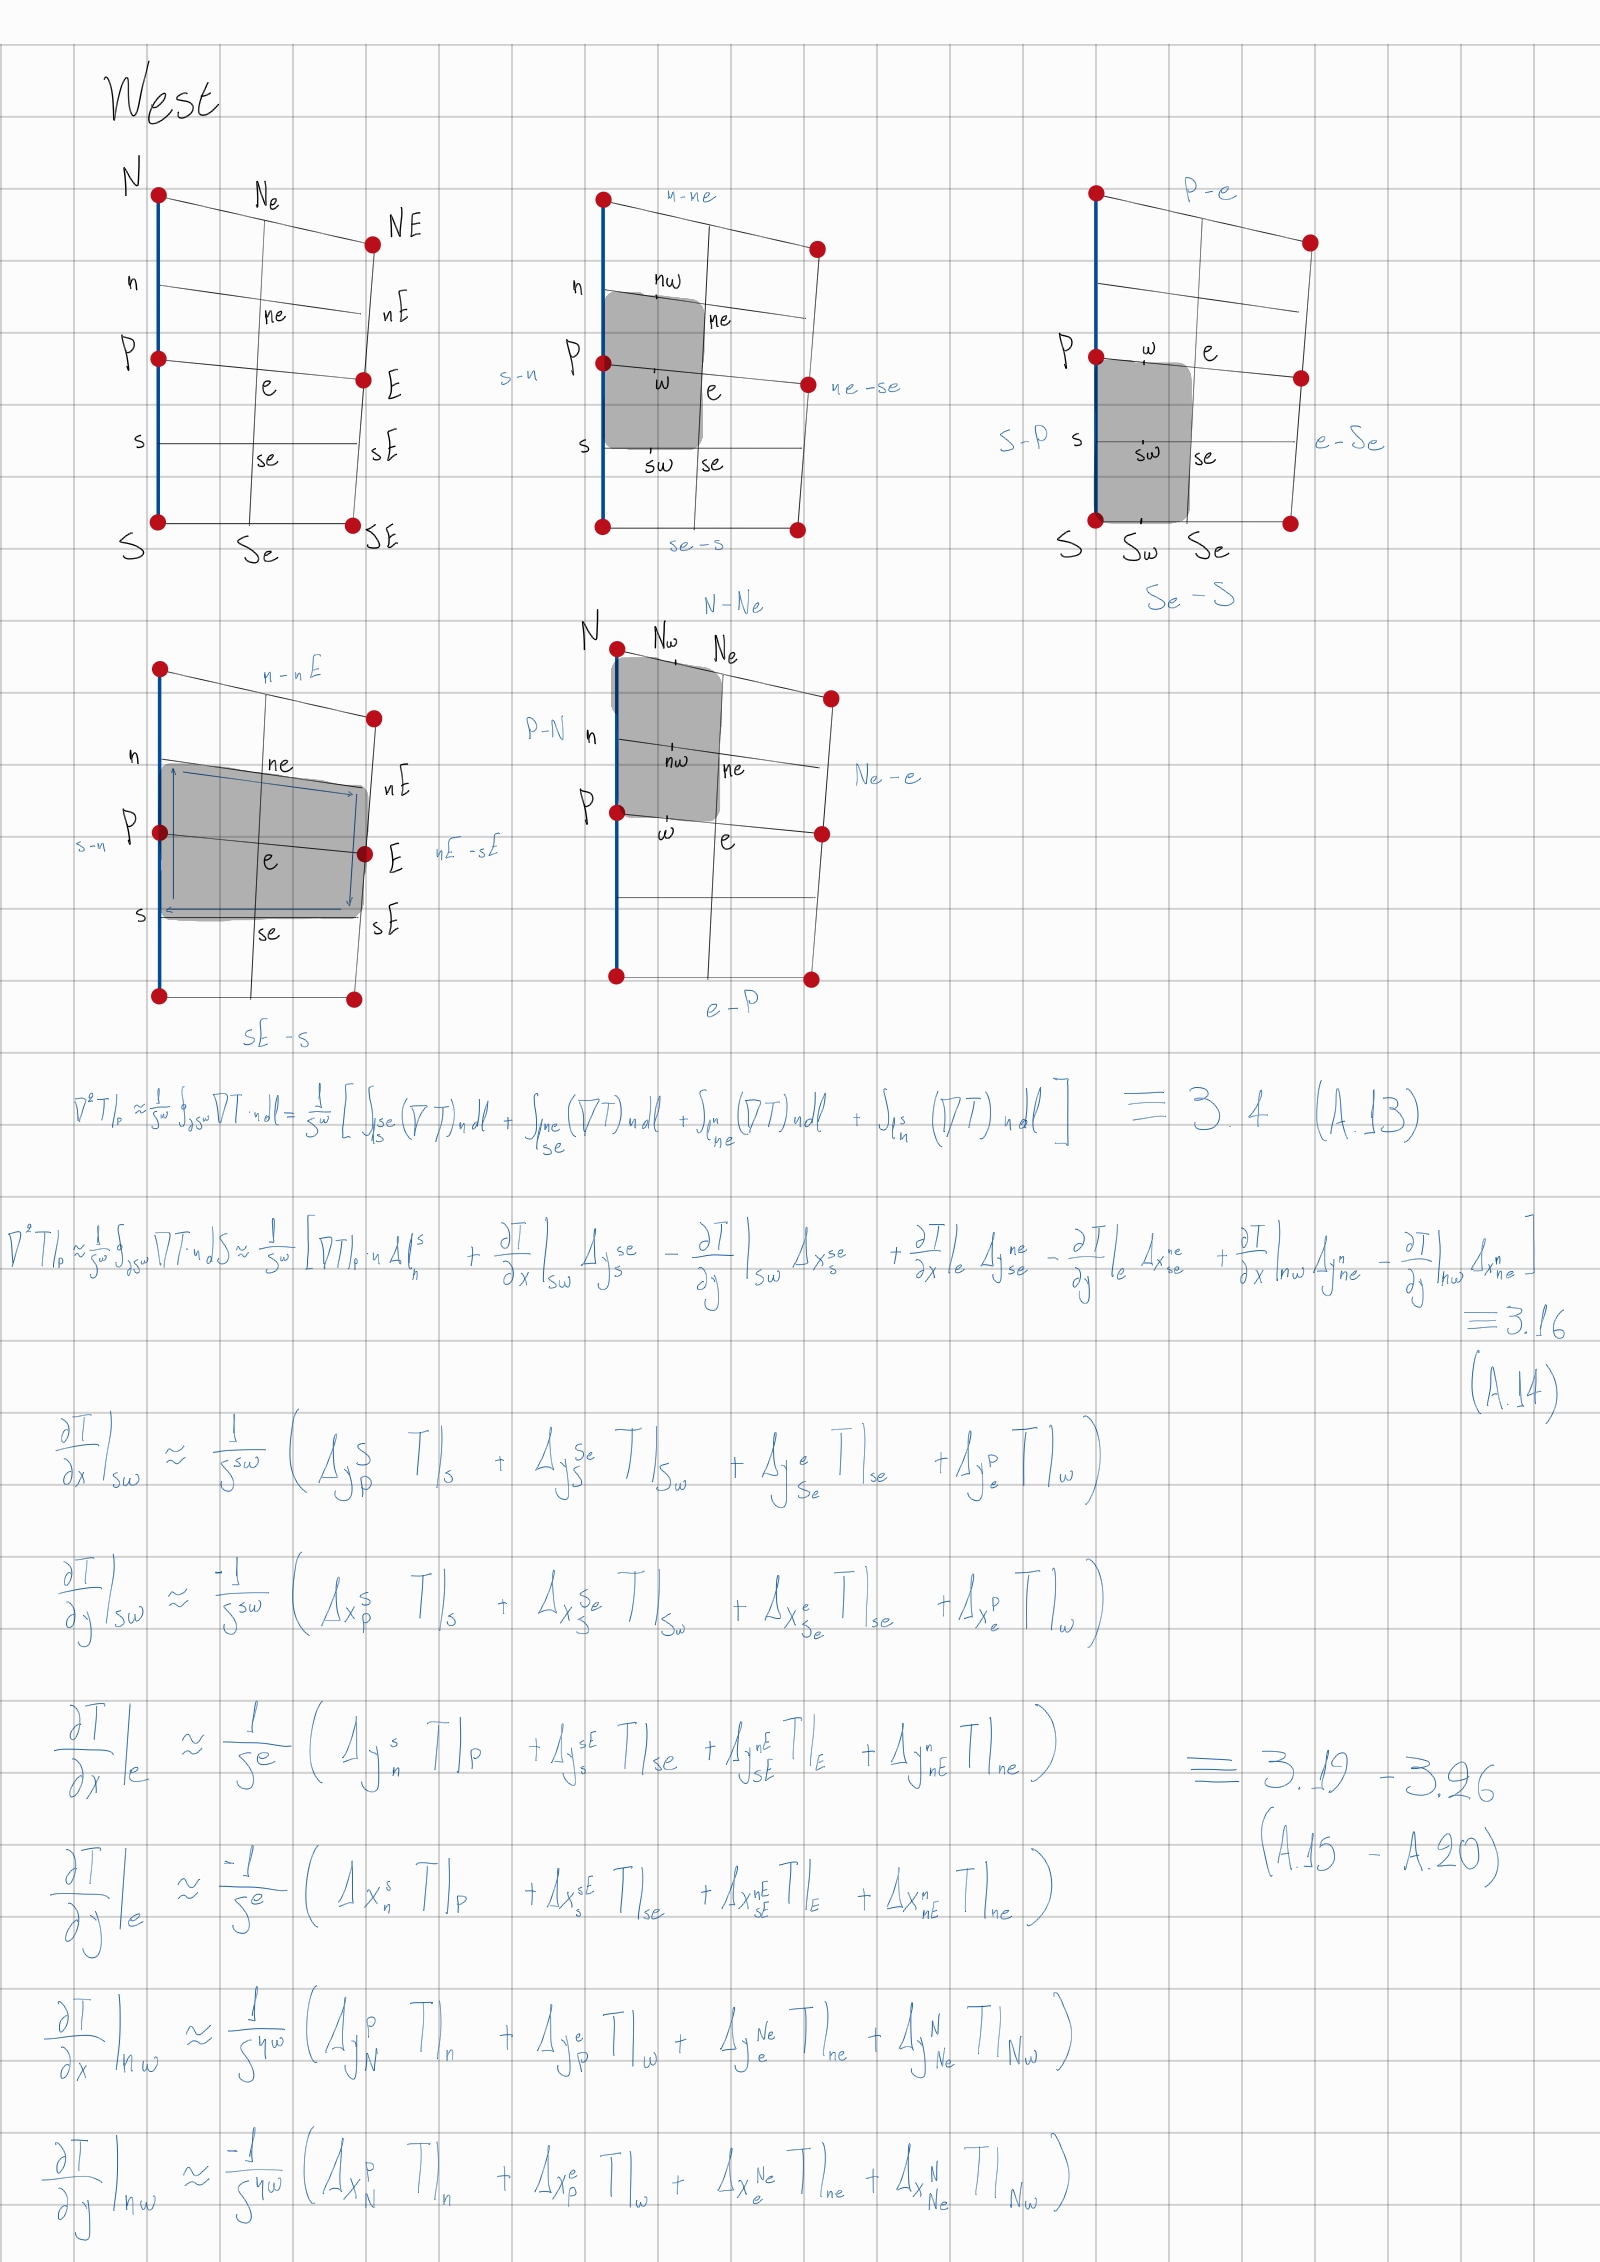 West
N Ne NE
n ne nE
P e E
s se sE
S Se SE
n-ne
n nw ne
s-n P w e ne-se
s sw se
se-s
P-e
P w e
S-P s sw se e-Se
S Sw Se
Se-S
n-nE
n ne nE
s-n P e E nE-sE
s se sE
sE-s
N-Ne
N Nw Ne
P-N n nw ne Ne-e
P w e
e-P
∇²T|_P ≈ 1/S^w ∮_∂S^w ∇T·n dl = 1/S^w [ ∫_{l_s^se} (∇T) n dl + ∫_{l_se^ne} (∇T) n dl + ∫_{l_ne^n} (∇T) n dl + ∫_{l_n^s} (∇T) n dl ] ≡ 3.4 (A.13)
∇²T|_P ≈ 1/S^w ∮_∂S^w ∇T·n dS ≈ 1/S^w [ ∇T|_P · n Δl_n^s + ∂T/∂x|_sw Δy_s^se - ∂T/∂y|_sw Δx_s^se + ∂T/∂x|_e Δy_se^ne - ∂T/∂y|_e Δx_se^ne + ∂T/∂x|_nw Δy_ne^n - ∂T/∂y|_nw Δx_ne^n ]
≡ 3.16
(A.14)
∂T/∂x|_sw ≈ 1/S^sw ( Δy_P^S T|_s + Δy_S^Se T|_Sw + Δy_Se^e T|_se + Δy_e^P T|_w )
∂T/∂y|_sw ≈ -1/S^sw ( Δx_P^S T|_s + Δx_S^Se T|_Sw + Δx_Se^e T|_se + Δx_e^P T|_w )
∂T/∂x|_e ≈ 1/S^e ( Δy_n^s T|_P + Δy_s^sE T|_se + Δy_sE^nE T|_E + Δy_nE^n T|_ne ) ≡ 3.19 - 3.26
(A.15 - A.20)
∂T/∂y|_e ≈ -1/S^e ( Δx_n^s T|_P + Δx_s^sE T|_se + Δx_sE^nE T|_E + Δx_nE^n T|_ne )
∂T/∂x|_nw ≈ 1/S^nw ( Δy_N^P T|_n + Δy_P^e T|_w + Δy_e^Ne T|_ne + Δy_Ne^N T|_Nw )
∂T/∂y|_nw ≈ -1/S^nw ( Δx_N^P T|_n + Δx_P^e T|_w + Δx_e^Ne T|_ne + Δx_Ne^N T|_Nw )